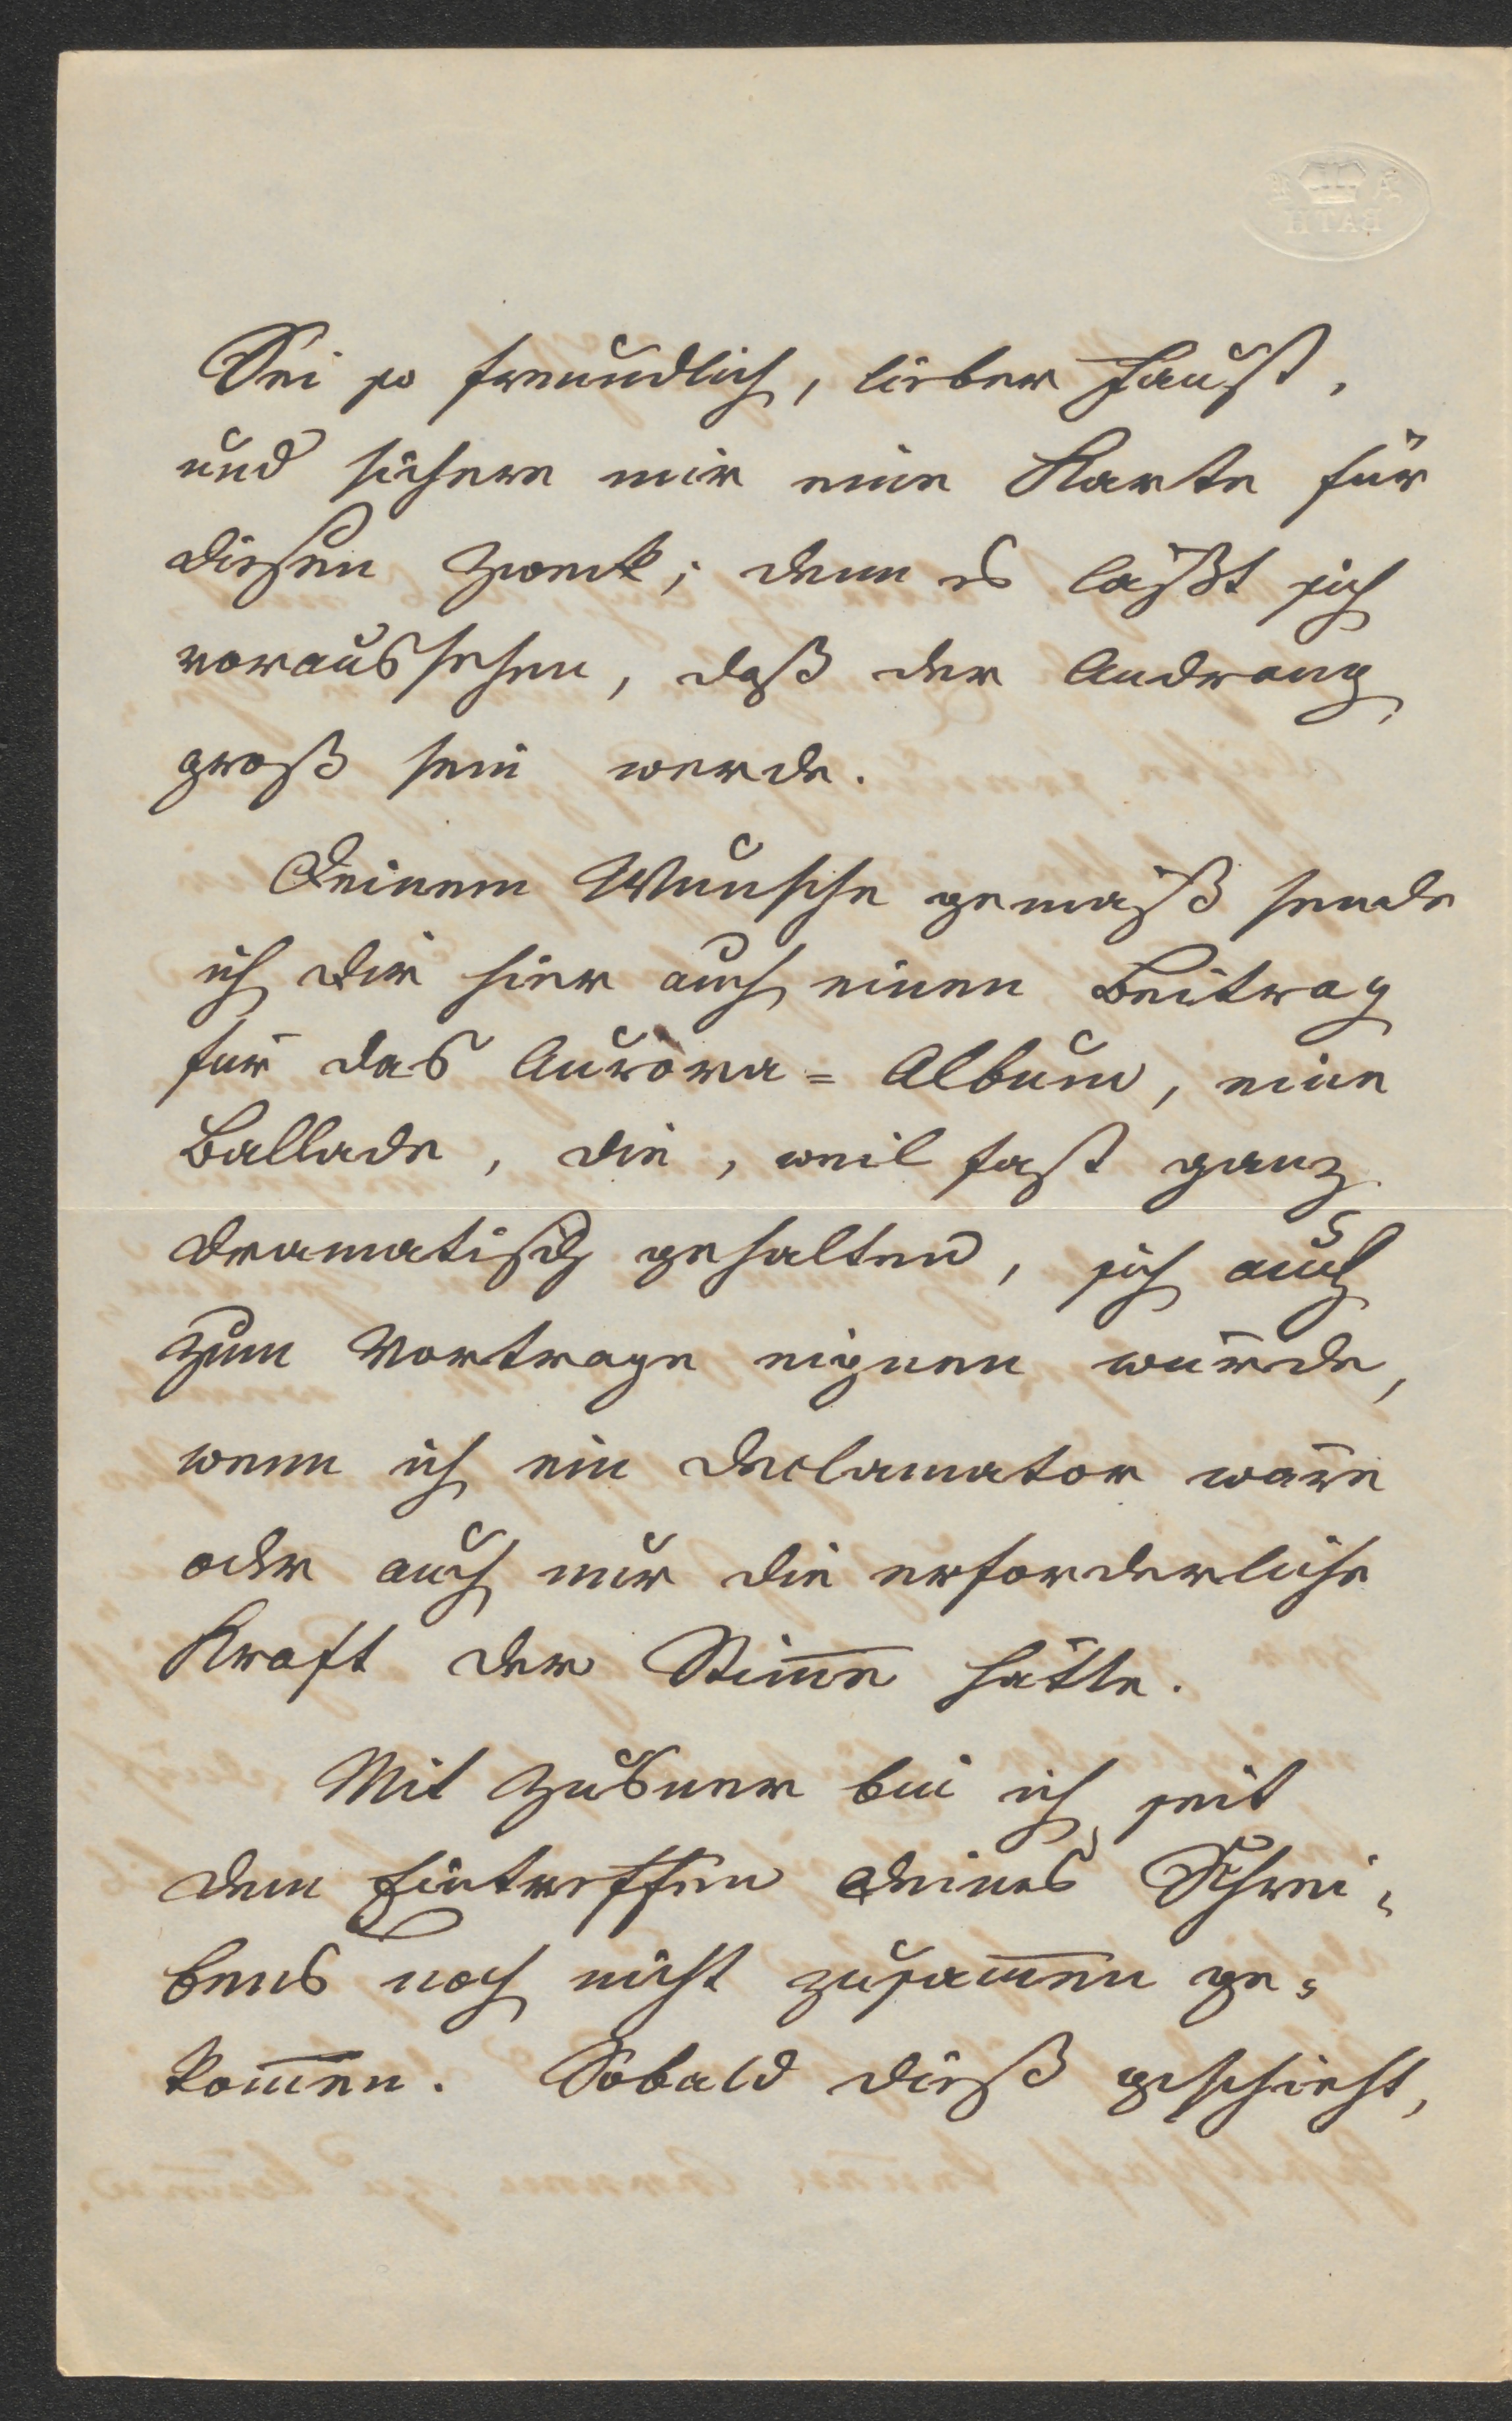 BATH
Sei so freundlich, lieber Faust,
und sichere mir eine Karte für
diesen Zweck; denn es läßt sich
voraussehen, daß der Andrang
groß sein werde.
Deinem Wunsche gemäß sende
ich Dir hier auch einen Beitrag
für das Aurora=Album, eine
Ballade, die, weil fast ganz
dramatisch gehalten, sich auch
zum Vortrage eignen würde,
wenn ich ein Declamator wäre
oder auch nur die erforderliche
Kraft der Stim̄e hätte.
Mit Zusner bin ich seit
dem Eintreffen Deines Schrei=
bens noch nicht zusam̄en ge=
kom̄en. Sobald dieß geschieht,